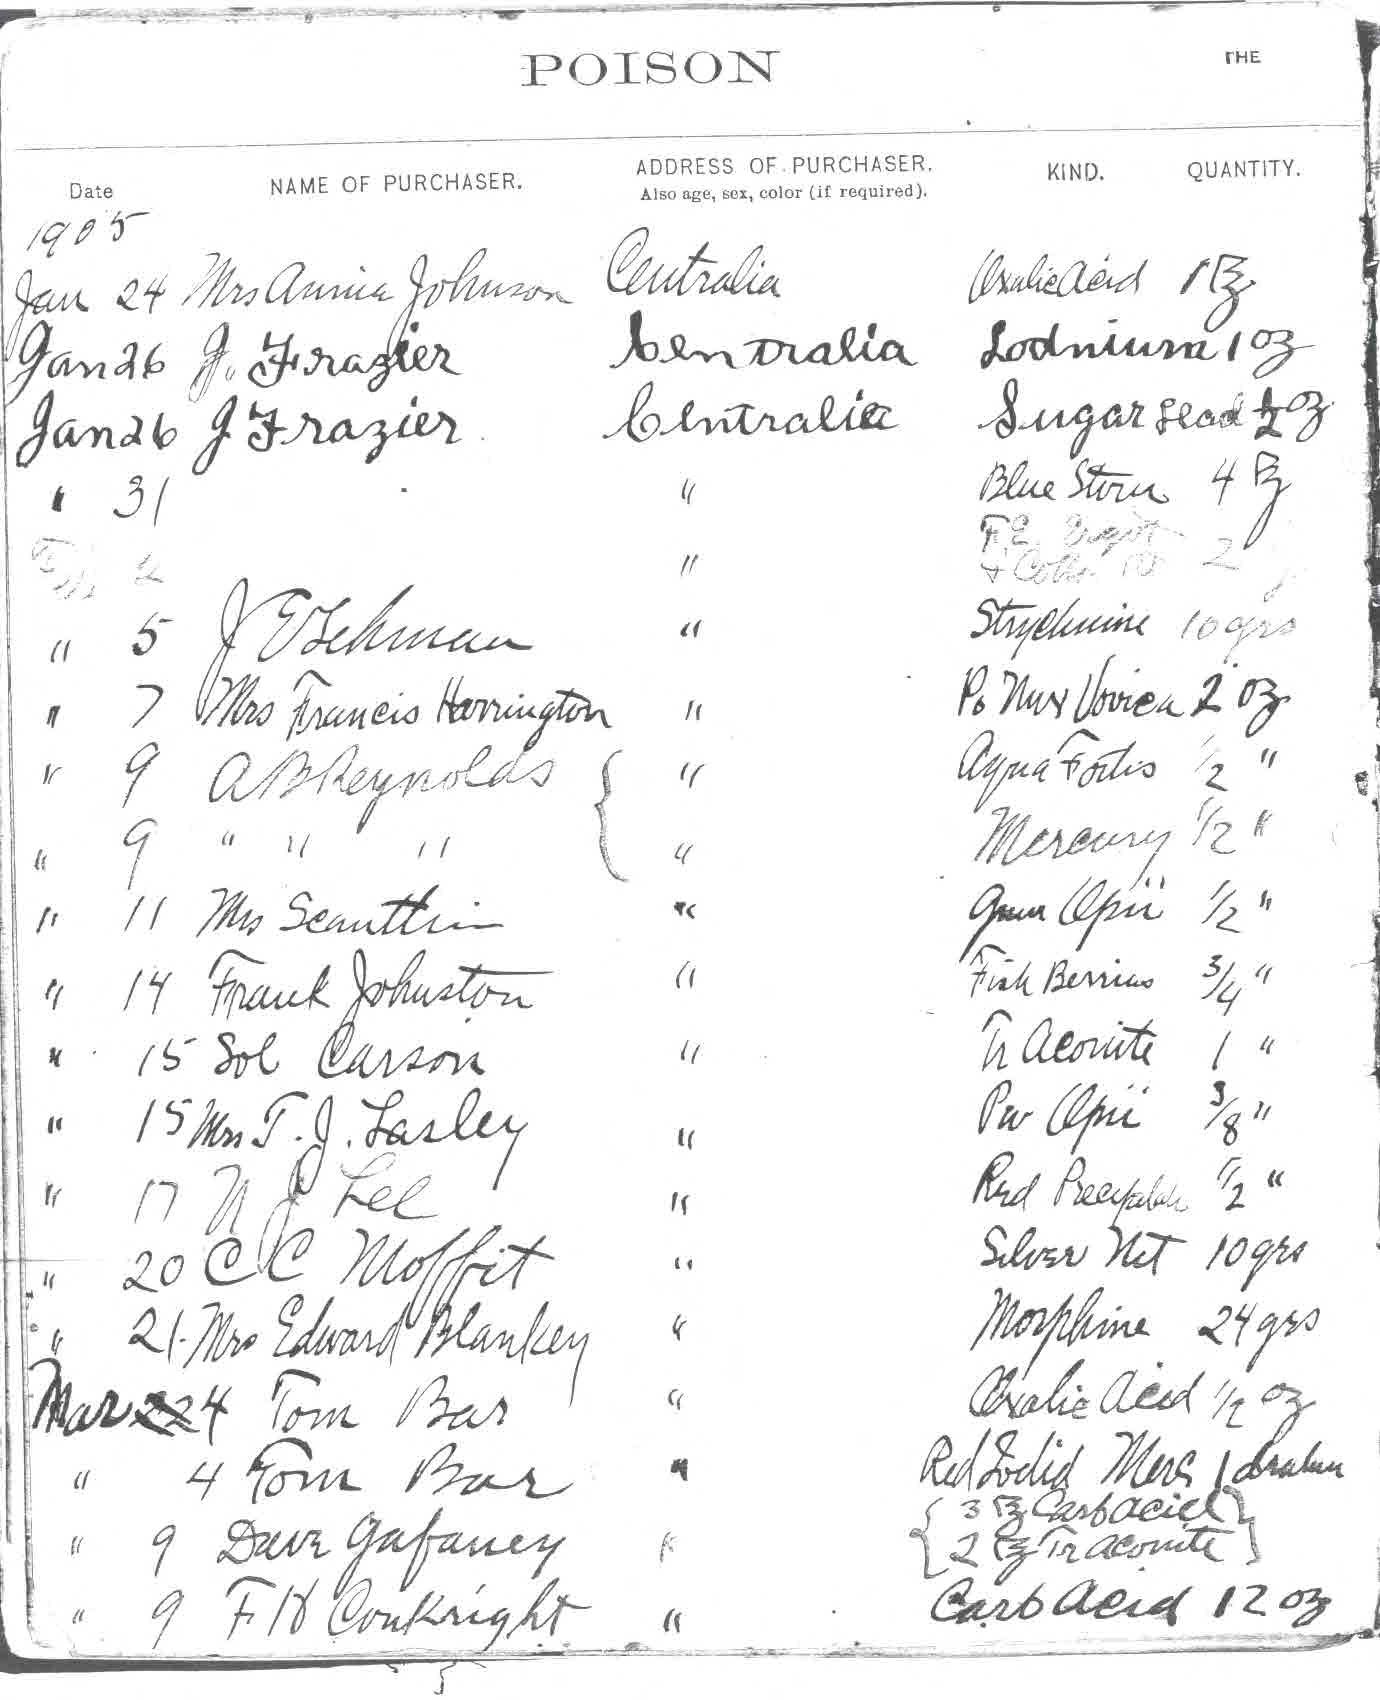 POISON THE
Date NAME OF PURCHASER. ADDRESS OF PURCHASER. KIND. QUANTITY.
Also age, sex, color (if required).
1905
Jan 24 Mrs Annia Johnson Centralia Oxalic Acid 1 ℥
Jan 26 J. Frazier Centralia Lodnium 1 oz
Jan 26 J Frazier Centralia Sugar Lead ½ oz
" 31 " Blue Ston 4 ℥
Feb 2 " F E Ergot
+ 2
" 5 J E Lehman " Strychnine 10 grs
" 7 Mrs Francis Harrington " Po Nux Vovica 2 oz
" 9 A B Reynolds " Aqua Fortis ½ "
" 9 " " " " Mercury ½ "
" 11 Mrs " Opii ½ "
" 14 Frank Johnston " Fish Berries ¾ "
" 15 Sol Carson " Tr Aconite 1 "
" 15 Mrs T. J. Lasley " Pw Opii ⅜ "
" 17 N J Lee " Red ½ "
" 20 C C Moffit " Silver Nit 10 grs
" 21 Mrs Edward Blankey " Morphine 24 grs
Mar 4 Tom Bar " Oxalic Acid ½ oz
" 4 Tom Bar " Red Iodid Merc 1 drahm
" 9 Dave Gafaney " 3 ℥ Carb Acid
2 ℥ Tr Aconite
" 9 F H Conkright " Carb Acid 12 oz